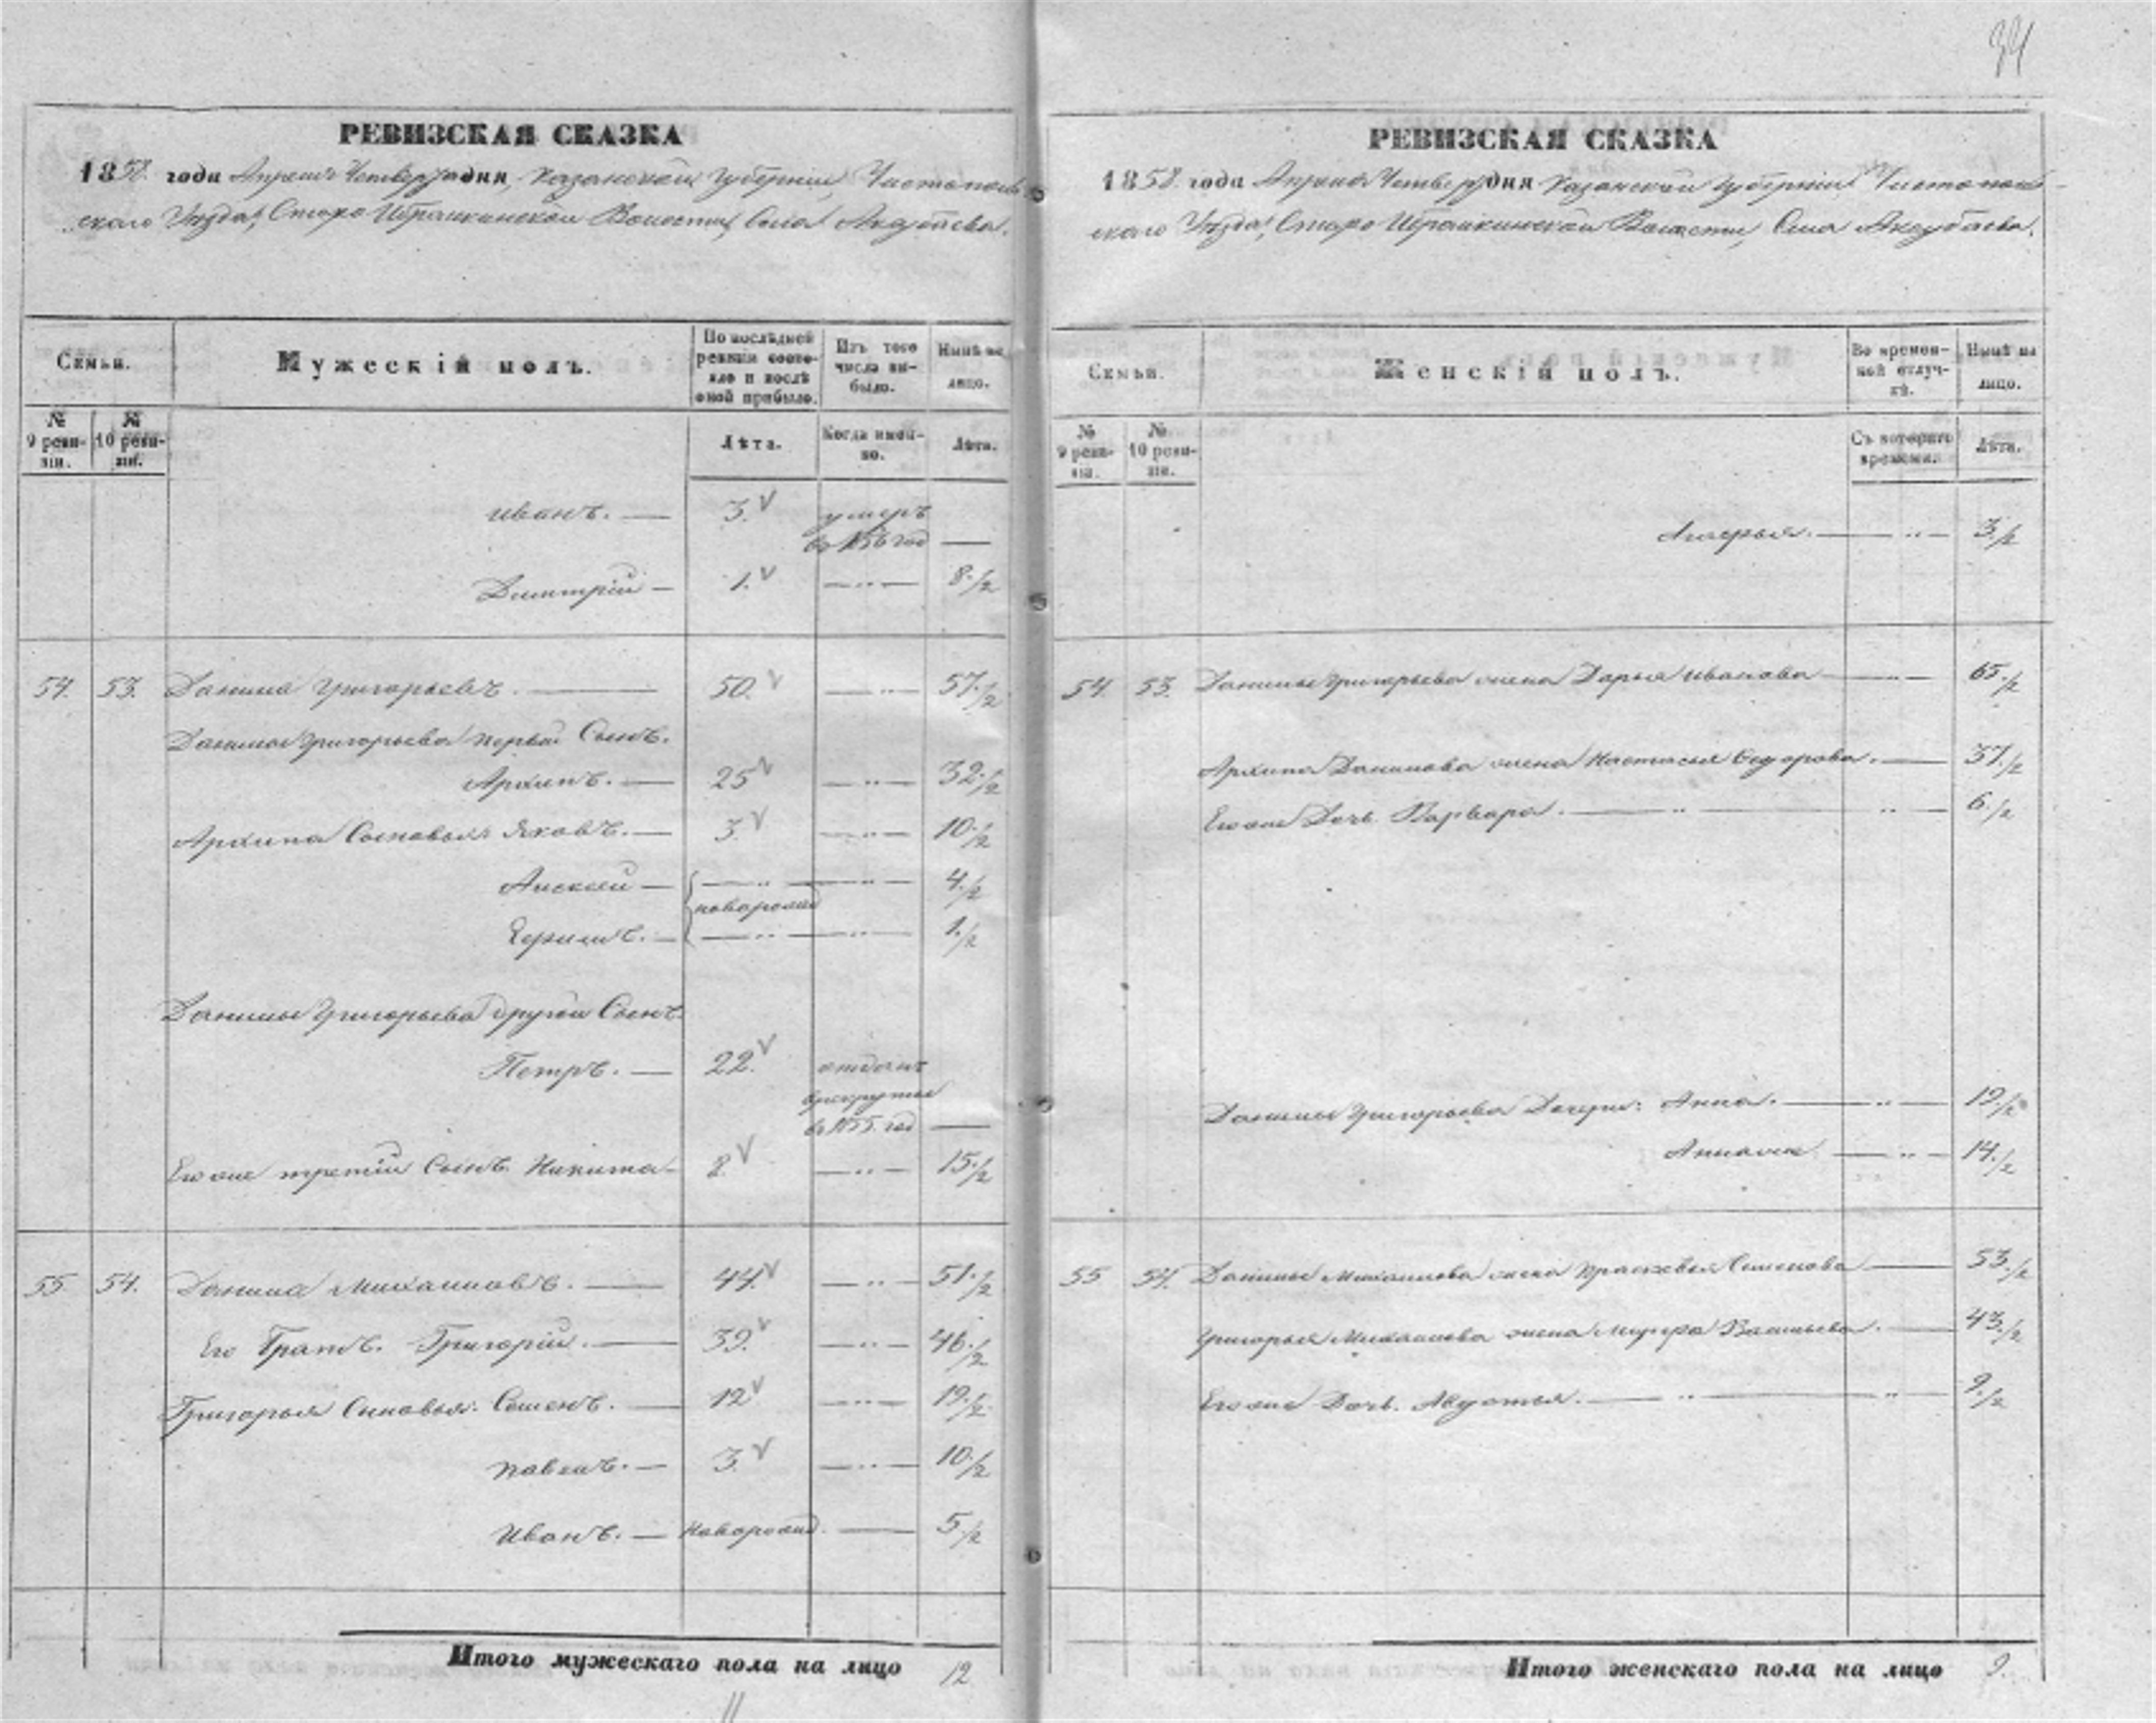 34
РЕВИЗСКАЯ СКАЗКА
1858. года Апреля Четвертаго дня, Казанской Губернiи, Чистополь-
скаго Уѣзда, Старо Ибрайкинской Волости, Села Аксубаева.
Семьи.
Мужескiй полъ.
По послѣдней ревизiи состояло и послѣ оной прибыло.
Изъ того числа выбыло.
Нынѣ на лицо.
№ 9 ревизiи.
№ 10 ревизiи.
Лѣта.
Когда именно.
Лѣта.
Иванъ. — 3. умеръ
в 1856 год —
Димитрiй — 1. — " — 8 1/2
54. 53. Данила Григорьевъ. — 50. — " — 57 1/2
Данилы Григорьева первый Сынъ.
Архипъ. — 25 — " — 32 1/2
Архипа Сыновья: Яковъ. — 3. — " — 10 1/2
Алексей — — " — — " — 4 1/2
новорожд
— — " — — " — 1 1/2
Данилы Григорьева другой Сынъ.
Петръ. — 22. отданъ
в рекруты
в 1855 год —
Его же третiй Сынъ Никита — 8. — " — 15 1/2
55 54. Данила Михайловъ. — 44. — " — 51 1/2
Его Братъ. Григорiй. — 39. — " — 46 1/2
Григорья Сыновья: Семенъ. — 12 — " — 19 1/2
Павелъ. — 3. — " — 10 1/2
Иванъ. — Новорожд. — 5 1/2
Итого мужескаго пола на лицо 12
11
РЕВИЗСКАЯ СКАЗКА
1858. года Апреля Четвертаго дня Казанской Губернiи Чистополь-
скаго Уѣзда, Старо Ибрайкинской Волости, Села Аксубаева.
Семьи.
Женскiй полъ.
Во временной отлучкѣ.
Нынѣ на лицо.
№ 9 ревизiи.
№ 10 ревизiи.
Съ котораго времени.
Лѣта.
— " — 3 1/2
54. 53. Данилы Григорьева жена Дарья Иванова — " — 65 1/2
Архипа Данилова жена Настасья Федорова. — " — 37 1/2
Его же Дочь Варвара. — " — " — 6 1/2
Данилы Григорьева Дочери: Анна. — " — 19 1/2
— " — 14 1/2
55 54. Данилы Михайлова жена Прасковья Семенова — 53 1/2
Григорья Михайлова жена Васильева. — 43 1/2
Его же Дочь. Авдотья. — " — " — 9 1/2
Итого женскаго пола на лицо 9.